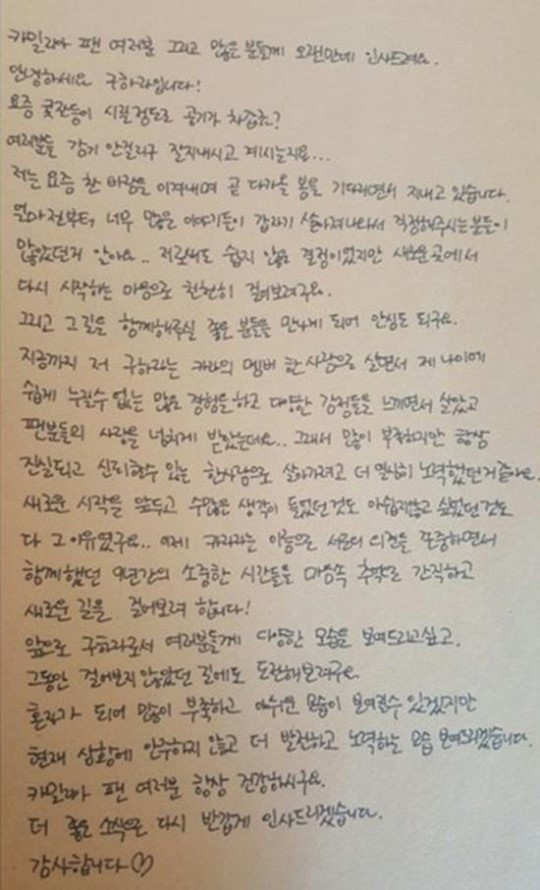 카밀리아 팬 여러분 그리고 많은 분들께 오랜만에 인사드려요.
안녕하세요 구하라입니다!
요즘 콧잔등이 시릴정도로 공기가 차갑죠?
여러분들 감기 안걸리구 잘지내시고 계시는지요...
저는 요즘 찬 바람을 이겨내며 곧 다가올 봄을 기다리면서 지내고 있습니다.
얼마전부터 너무 많은 이야기들이 갑자기 쏟아져나와서 걱정해주시는 분들이
많았던거 알아요.. 저로써도 쉽지 않은 결정이었지만 새로운 곳에서
다시 시작하는 마음으로 천천히 걸어보려구요.
그리고 그 길을 함께해주실 좋은 분들을 만나게 되어 안심도 되구요.
지금까지 저 구하라는 카라의 멤버 한 사람으로 살면서 제 나이에
쉽게 누릴수 없는 많은 경험을 하고 다양한 감정들을 느끼면서 살았고
팬분들의 사랑을 넘치게 받았는데요.. 그래서 많이 부족하지만 항상
진실되고 신뢰할수 있는 한사람으로 살아가려고 더 열심히 노력했던거 같아요.
새로운 시작을 앞두고 수많은 생각이 들었던것도 아쉽지않고 싶었던것도
다 그 이유였구요.. 이제 카라라는 이름으로 서로의 의견을 존중하면서
함께했던 9년간의 소중한 시간들을 마음속 추억으로 간직하고
새로운 길을 걸어보려 합니다!
앞으로 구하라로서 여러분들께 다양한 모습을 보여드리고싶고,
그동안 걸어보지 않았던 길에도 도전해보려구요.
혼자가 되어 많이 부족하고 아쉬운 모습이 보여질수 있겠지만
현재 상황에 안주하지 않고 더 발전하고 노력하는 모습 보여드리겠습니다.
카밀리아 팬 여러분 항상 건강하시구요.
더 좋은 소식으로 다시 반갑게 인사드리겠습니다.
감사합니다♡